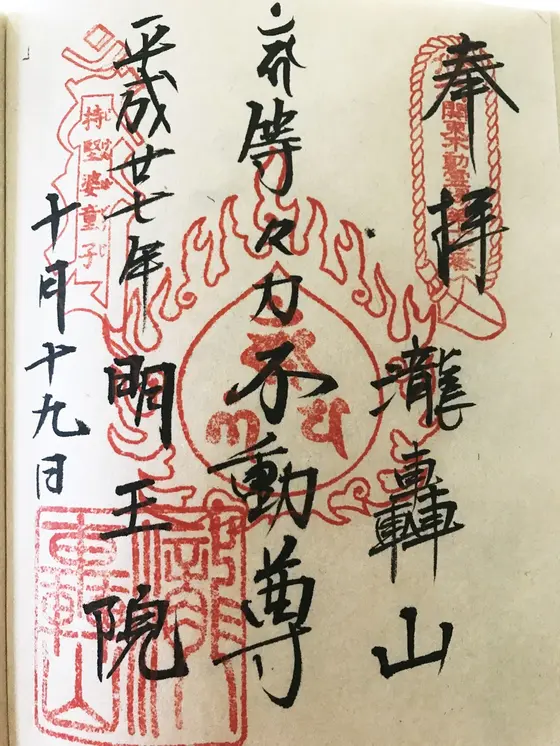 奉拝
関東不動
瀧轟山
等々力不動尊
平成廿七年
明王院
十月十九日
持堅婆童子
瀧轟山